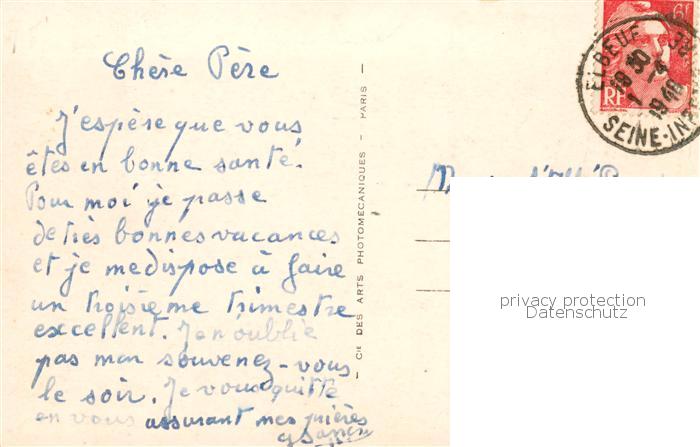 Chère Père
J'espère que vous
êtes en bonne santé.
Pour moi je passe
de très bonnes vacances
et je me dispose à faire
un troisième trimestre
excellent. J'en oublie
pas mon souvenez-vous
le soir. Je vous quitte
en vous assurant mes prières
— CIE DES ARTS PHOTOMÉCANIQUES - PARIS —
RF
ELBEUF
1948
SEINE-INF
privacy protection
Datenschutz